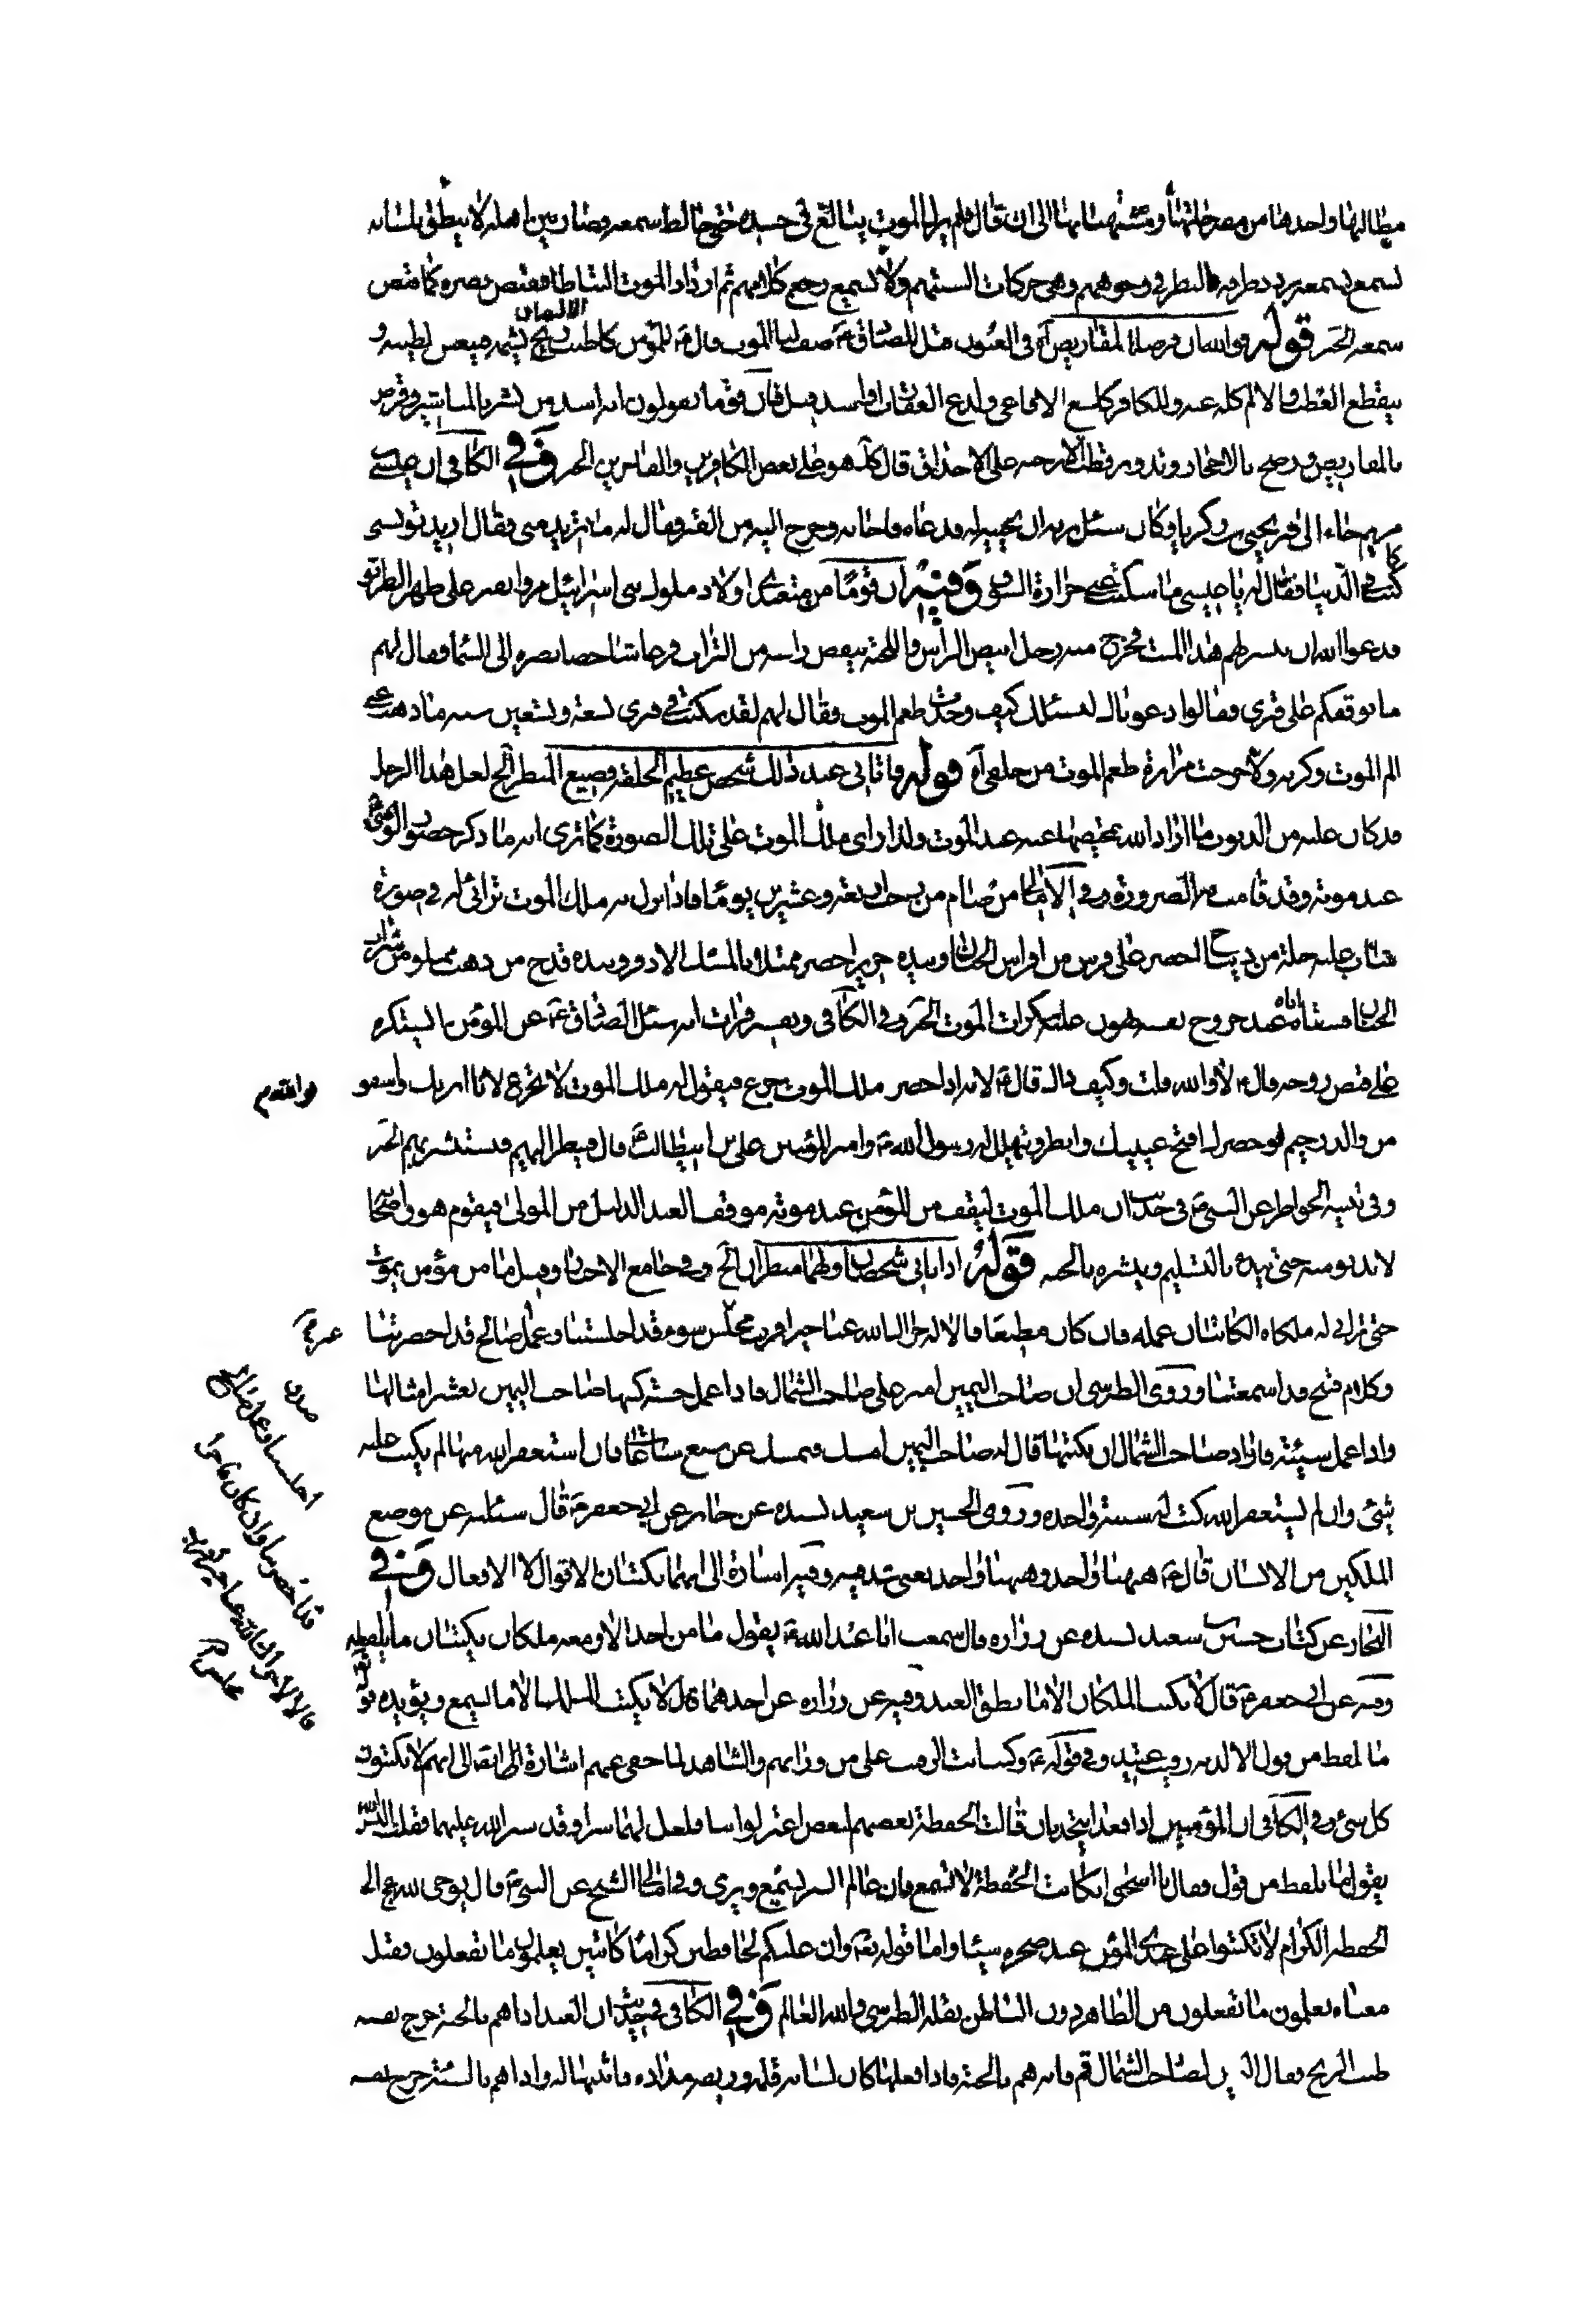 مطالبها واحدها من مصرحاتها ومشتبهاتها الى ان قال فلم يزل الموت يبالغ في جسده حتى خالط سمعه فصار بين اهله لا ينطق بلسانه
يسمع بسمعه يردد طرفه بالنظر في وجوههم يرى حركات السنتهم ولا يسمع رجع كلامهم ثم ازداد الموت التياطا فقبض بصره كما قبض
سمعه الخبر قوله فوالله ان قرضا بالمقاريض آه في العيون قيل للصادق ع صف لنا الموت قال ع للمؤمن كاطيب ريح يشمه فينعس لطيبه و
ينقطع التعب والالم كله عنه وللكافر كلسع الافاعي ولدغ العقارب او اشد قيل فان قوما يقولون انه اشد من نشر بالمناشير وقرض
بالمقاريض ورضخ بالاحجار وتدوير قطب الارحية على الاحداق قال كذلك هو على بعض الكافرين والفاجرين الخبر وفي الكافي ان عيسى
مريم جاء الى قبر يحيى بن زكريا وكان سئل ربه ان يحييه له فدعاه فاجابه وخرج اليه من القبر فقال له ما تريد مني فقال اريد تونسني
كما كنت في الدنيا فقال له يا عيسى ما سكنت عني حرارة الموت وفيه ان قوما من متعبدي اولاد ملوك بني اسرائيل مروا بقبر على ظهر الطريق
فدعوا الله ان ينشر لهم هذا الميت فخرج منه رجل ابيض الراس واللحية ينفض راسه من التراب فزعا شاخصا بصره الى السماء فقال لهم
ما يوقفكم على قبري فقالوا دعوناك لنسئلك كيف وجدت طعم الموت فقال لهم لقد سكنت في قبري تسعة وتسعين سنة ما ذهب عني
الم الموت وكربه ولا خرجت مرارة طعم الموت من حلقي آه قوله فاتاني عند ذلك شخص عظيم الخلقة فضيع المنظر الخ لعل هذا الرجل
قد كان عليه من الذنوب ما اراد الله تمحيصها عنه عند الموت ولذا راى ملك الموت على تلك الصورة كما ترى انه ما ذكر حضور
عند موته وقد قامت الضرورة وفي الامالي من صام من رجب اربعة وعشرين يوما فاذا نزل به ملك الموت تراءى له في صورة
شاب عليه حلة من ديباج اخضر على فرس من افراس الجنان وبيده حرير اخضر ممسك بالمسك الاذفر وبيده قدح من ذهب مملو من شراب
الجنان فسقاه اياه عند خروج نفسه يهون عليه سكرات الموت الخبر وفي الكافي انه سئل الصادق ع عن المؤمن يستكره
على قبض روحه قال ع لا والله قلت وكيف ذاك قال ع لانه اذا حضر ملك الموت جزع فيقول له ملك الموت لا تجزع لانا ابر بك واشفق
من والد رحيم لو حضرك افتح عينيك وانظر ويتهلل له رسول الله ص وامير المؤمنين علي بن ابيطالب ع قال فينظر اليهم فيستبشر بهم الخبر
وفي تنبيه الخواطر عن النبي ص في حديث ان ملك الموت ليقف من المؤمن عند موته موقف العبد الذليل من المولى فيقوم هو واصحابه
لا يدنو منه حتى يبدء بالتسليم ويبشره بالجنة قوله اذا اتاني شخصان ولهما منظران الخ وفي جامع الاخبار وقيل ما من مؤمن يموت
حتى تراءى له ملكاه الكاتبان عمله فان كان مطيعا قالا له جزاك الله عنا خيرا فرب مجلس سوء قد اجلستنا وعمل صالح قد احضرتنا
وكلام قبيح قد اسمعتنا وروى الطبرسي ان صاحب اليمين امير على صاحب الشمال فاذا عمل حسنة كتبها صاحب اليمين بعشر امثالها
واذا عمل سيئة فاراد صاحب الشمال ان يكتبها قال له صاحب اليمين امسك فيمسك عن سبع ساعات فان استغفر الله منها لم يكتب عليه
شيئ وان لم يستغفر الله كتب له سيئة واحدة وروى الحسين بن سعيد بسنده عن جابر عن ابي جعفر ع قال سئلته عن موضع
الملكين من الانسان قال ع ههنا واحد وههنا واحد يعني شدقيه وفيه اشارة الى انهما يكتبان الاقوال لا الافعال وفي
البحار عن كتاب حسين بن سعيد بسنده عن زرارة قال سمعت ابا عبد الله ع يقول ما من احد الا ومعه ملكان يكتبان ما يلفظه
وفيه عن ابي جعفر ع قال لا يكتب الملكان الا ما ينطق العبد وفيه عن زرارة عن احدهما قال لا يكتب الملك الا ما يسمع ويؤيده قوله تعالى
ما يلفظ من قول الا لديه رقيب عتيد وفي قوله ع وكنت انت الرقيب علي من ورائهم والشاهد لما خفي عنهم اشارة الى انهم لا يكتبون
كل شيء وفي الكافي ان المؤمنين اذا قعدا يتحدثان قالت الحفظة بعضهم لبعض اعتزلوا بنا فلعل لهما سرا وقد ستر الله عليهما فقلت اليس الله
يقول ما يلفظ من قول فقال يا اسحق ان كانت الحفظة لا تسمع فان عالم السر يسمع ويرى وفي امالي الشيخ عن النبي ص قال يوحي الله عج الى
الحفظة الكرام لا تكتبوا على عبدي المؤمن عند ضجره شيئا واما قوله تعالى وان عليكم لحافظين كراما كاتبين يعلمون ما تفعلون فقيل
معناه يعلمون ما تفعلون من الظاهر دون الباطن نقله الطبرسي والله العالم وفي الكافي في حديث ان العبد اذا هم بالحسنة خرج نفسه
طيب الريح فقال اليمين لصاحب الشمال قم فانه هم بالحسنة فاذا فعلها كان لسانه قلمه وريقه مداده فاثبتها له واذا هم بالسيئة خرج نفسه